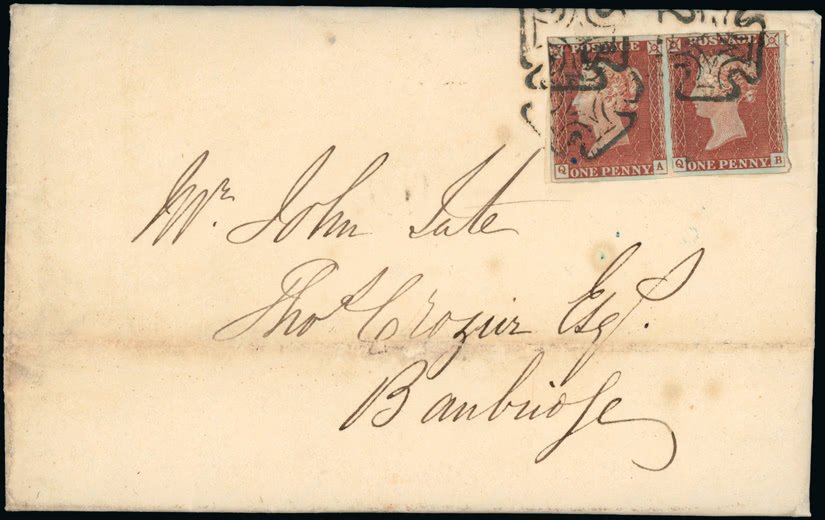 POSTAGE POSTAGE
Q A Q B
ONE PENNY ONE PENNY
Mr. John Tate
Thos Crozier Esq.
Banbridge